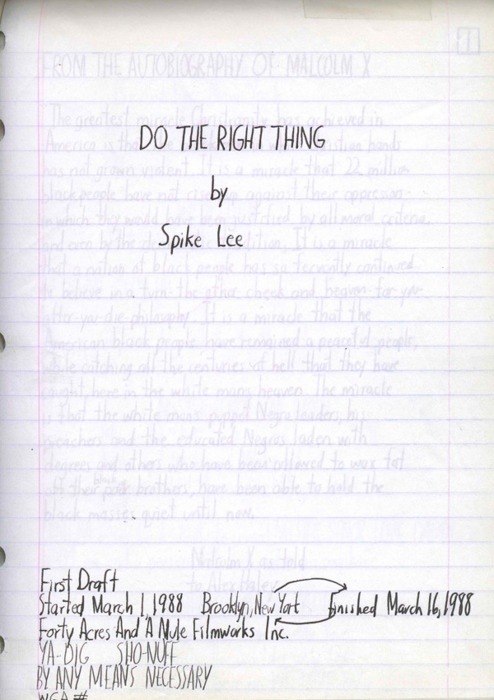 1
FROM THE AUTOBIOGRAPHY OF MALCOLM X
The greatest miracle Christianity has achieved in
America is that hands
DO THE RIGHT THING
has not grown violent. It is a miracle that 22 million
black people have not against their oppressors
by
in which they would have been justified by all moral criteria,
Spike Lee
and even by the tradition. It is a miracle
that a nation of black people has so fervently continued
to believe in a turn-the-other cheek and heaven-for-you-
after-you-die philosophy. It is a miracle that the
American black people have remained a peaceful people,
while catching all the centuries of hell that they have
caught here in the white mans heaven. The miracle
is that the white mans puppet Negro leaders, his
preachers and the educated Negros laden with
degrees and others who have been allowed to wax fat
off their poor brothers, have been able to hold the
black masses quiet until now.
Malcolm X as told
to Alex Haley
First Draft
Started March 1, 1988 Brooklyn, New York Finished March 16, 1988
Forty Acres And A Mule Filmworks Inc.
YA-DIG SHO-NUFF
BY ANY MEANS NECESSARY
WGA #